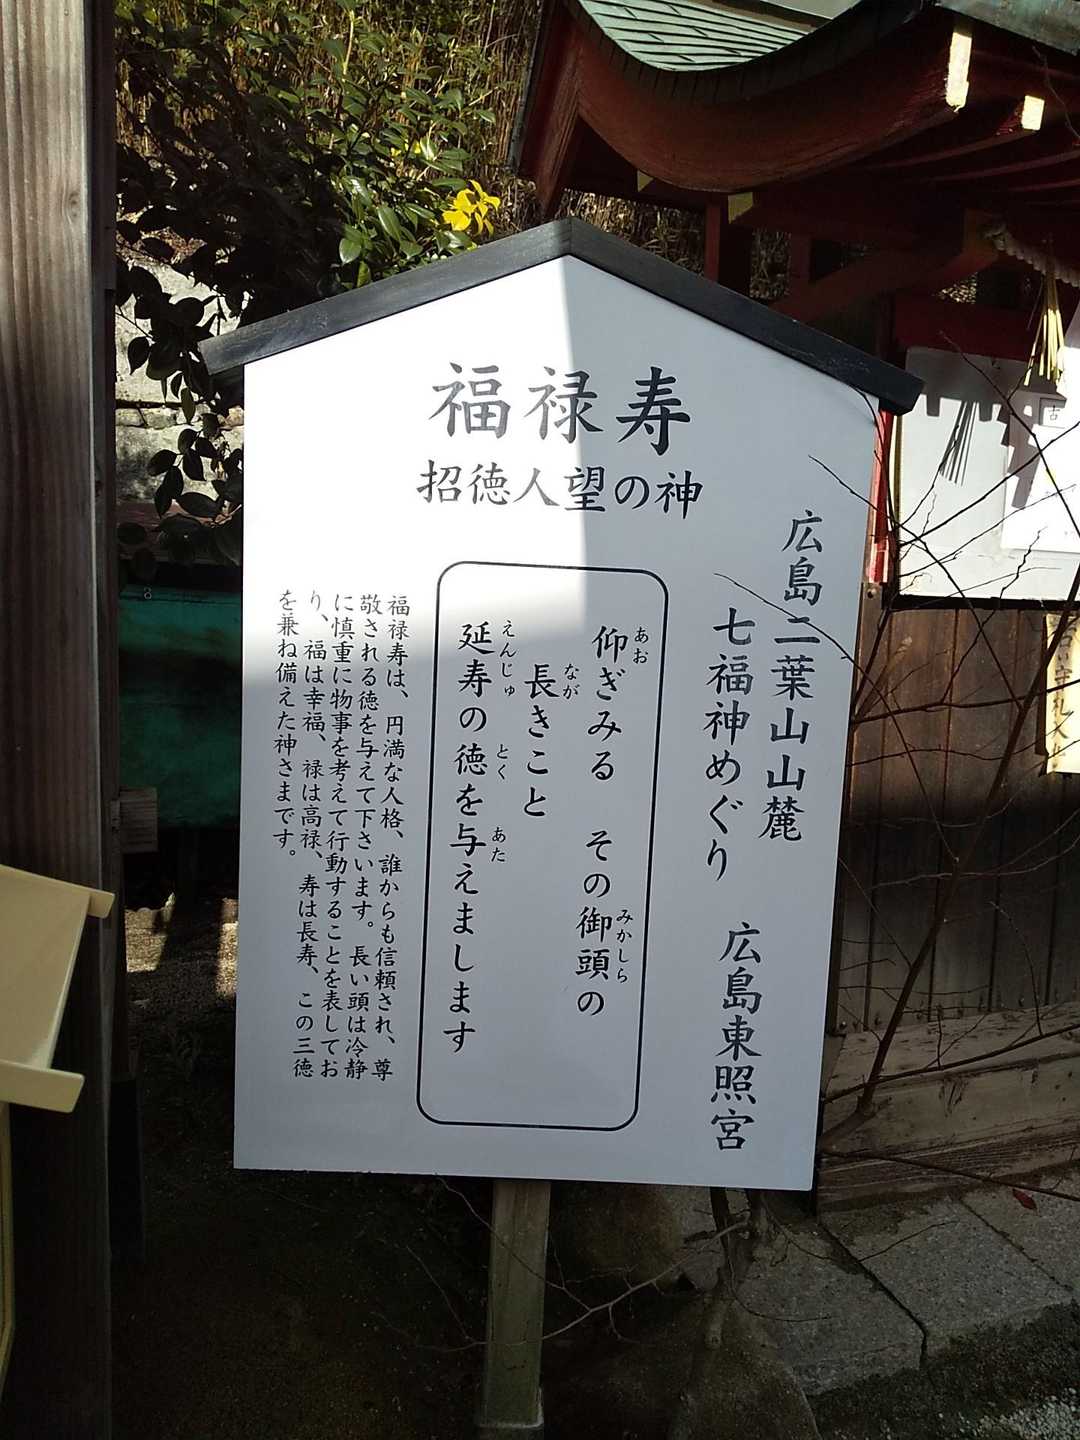 福禄寿
招徳人望の神
広島二葉山山麓
七福神めぐり 広島東照宮
仰ぎみる その御頭の
あお みかしら
長きこと
なが
延寿の徳を与えまします
えんじゅ とく あた
福禄寿は、円満な人格、誰からも信頼され、尊
敬される徳を与えて下さいます。長い頭は冷静
に慎重に物事を考えて行動することを表してお
り、福は幸福、禄は高禄、寿は長寿、この三徳
を兼ね備えた神さまです。